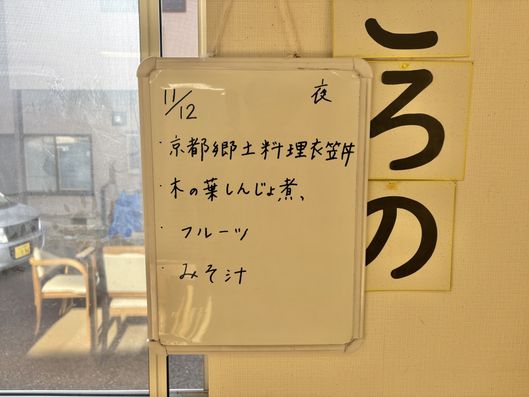 11/12 夜
・京都郷土料理衣笠丼
・木の葉しんじょ煮、
・フルーツ
・みそ汁
ろ
の